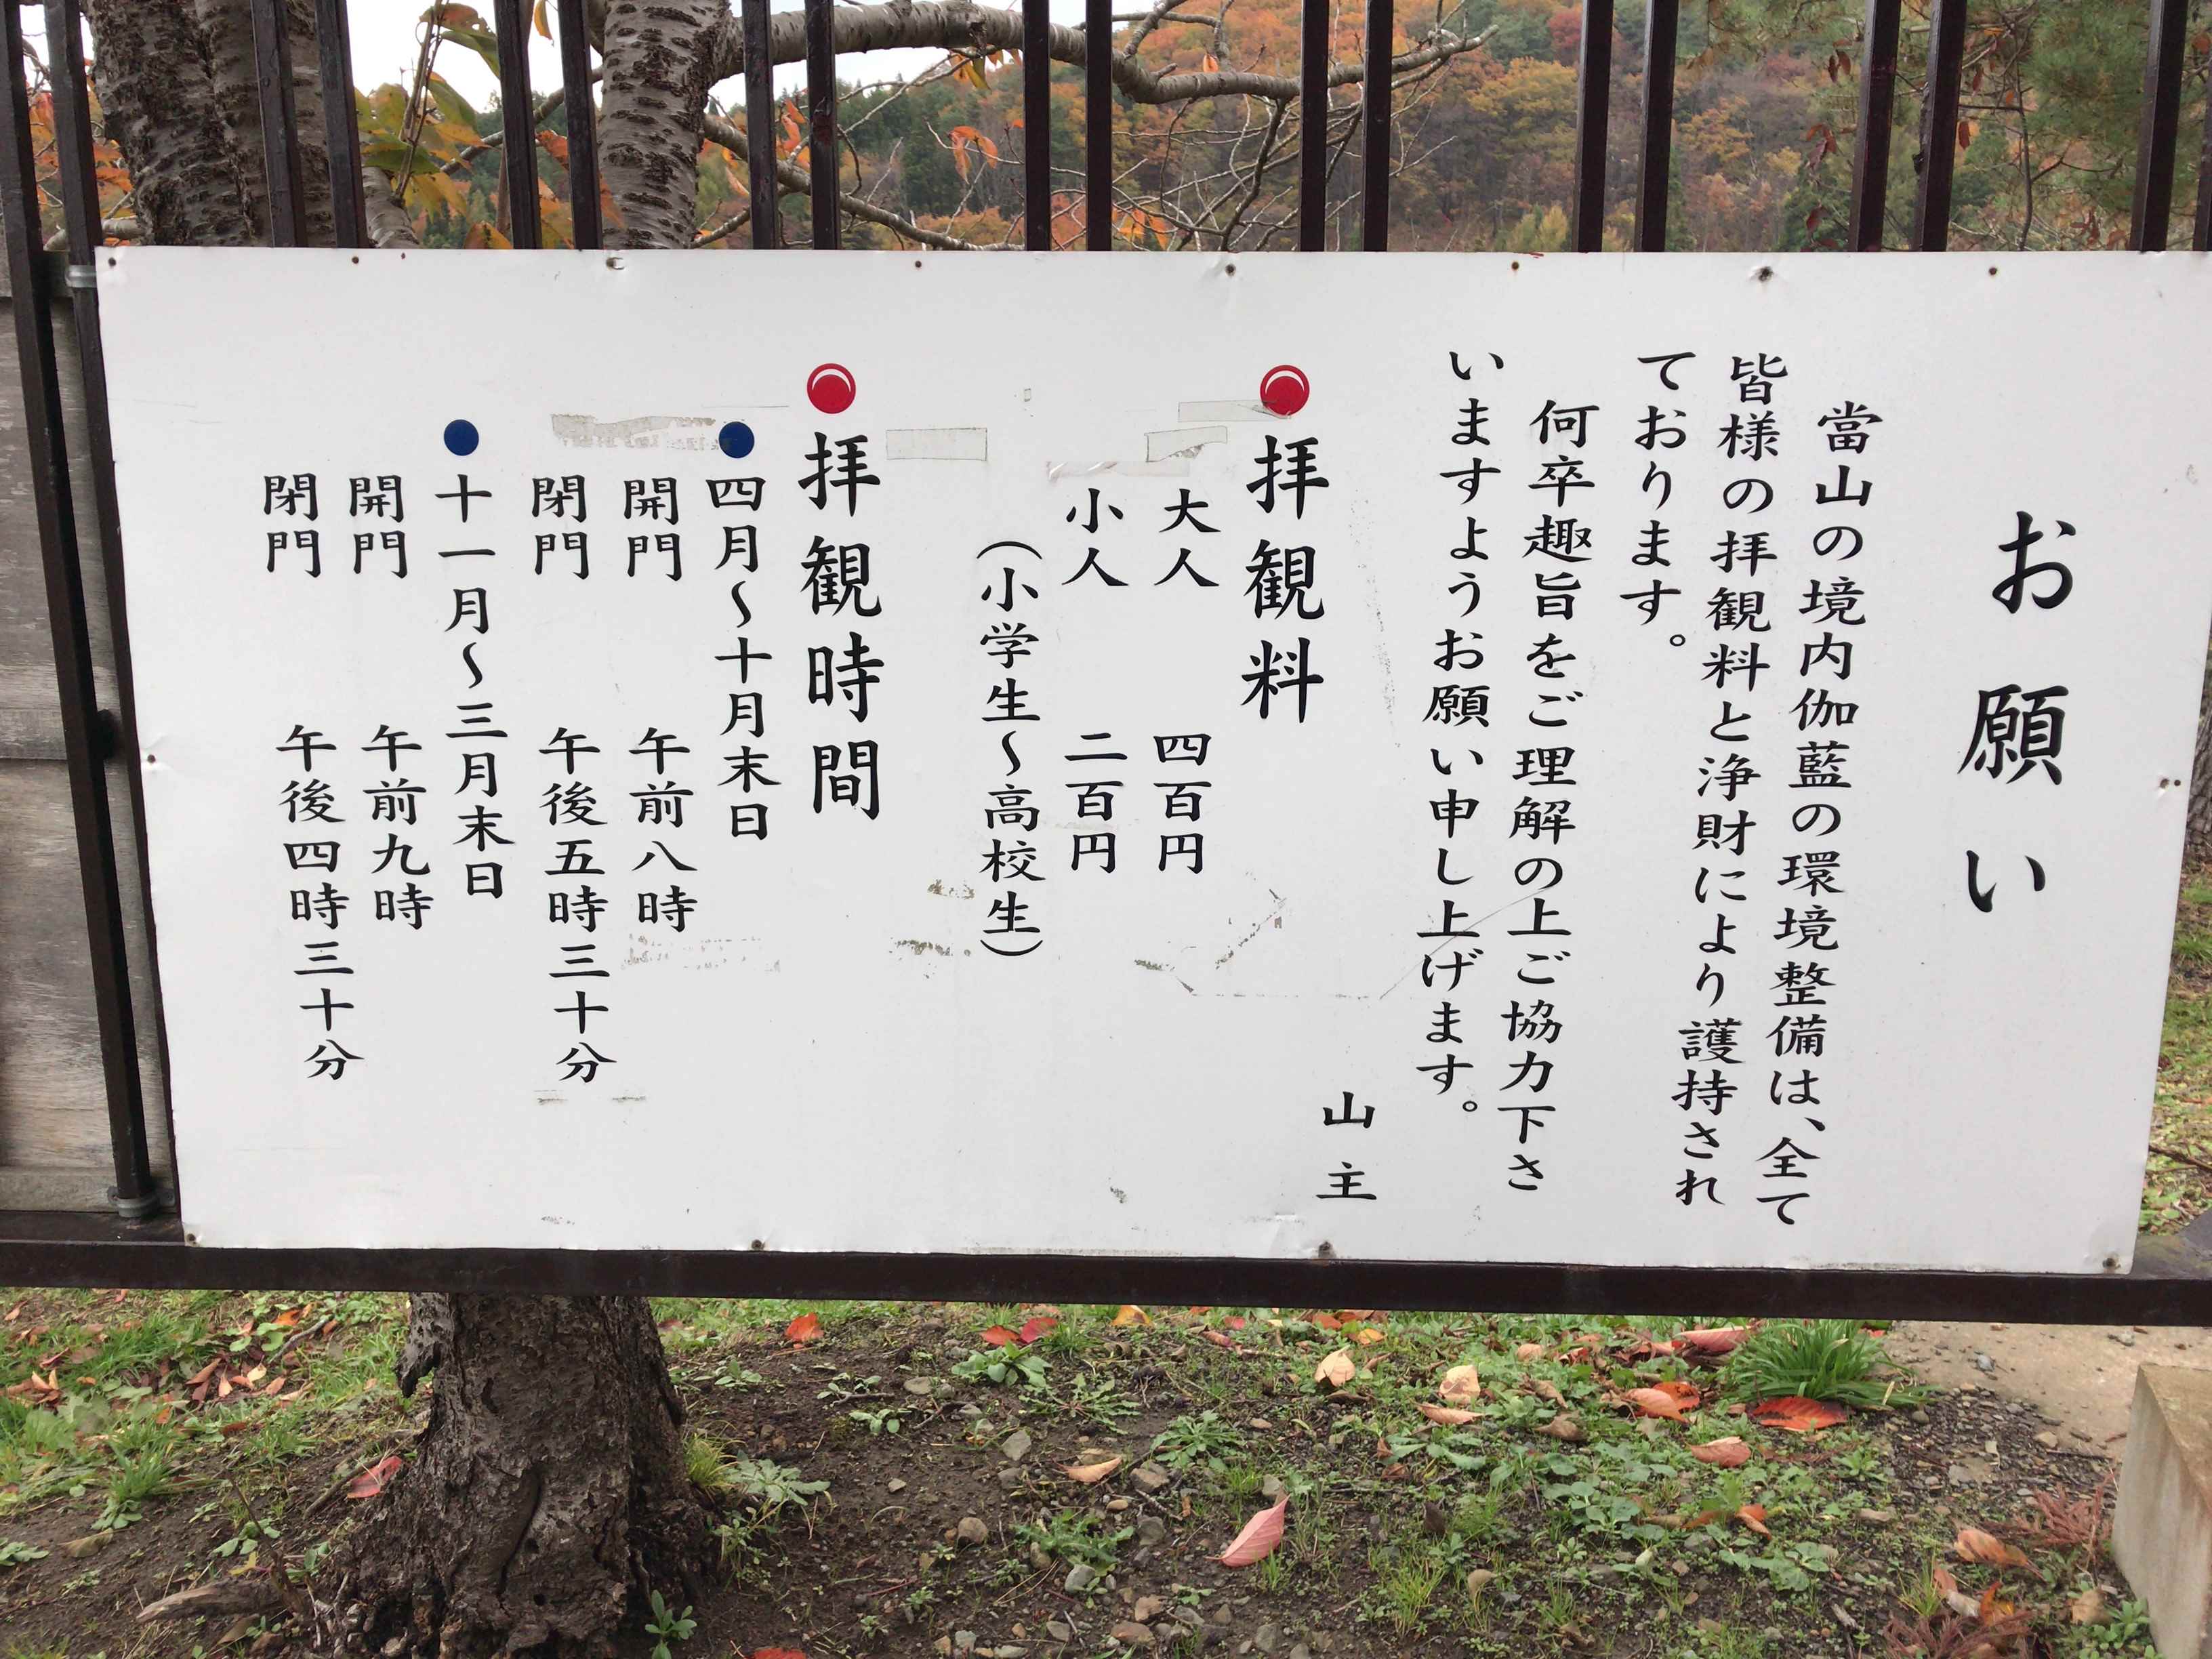 お願い
當山の境内伽藍の環境整備は、全て
皆様の拝観料と浄財により護持され
ております。
何卒趣旨をご理解の上ご協力下さ
いますようお願い申し上げます。
山主
拝観料
大人 四百円
小人 二百円
（小学生〜高校生）
拝観時間
四月〜十月末日
開門 午前八時
閉門 午後五時三十分
十一月〜三月末日
開門 午前九時
閉門 午後四時三十分